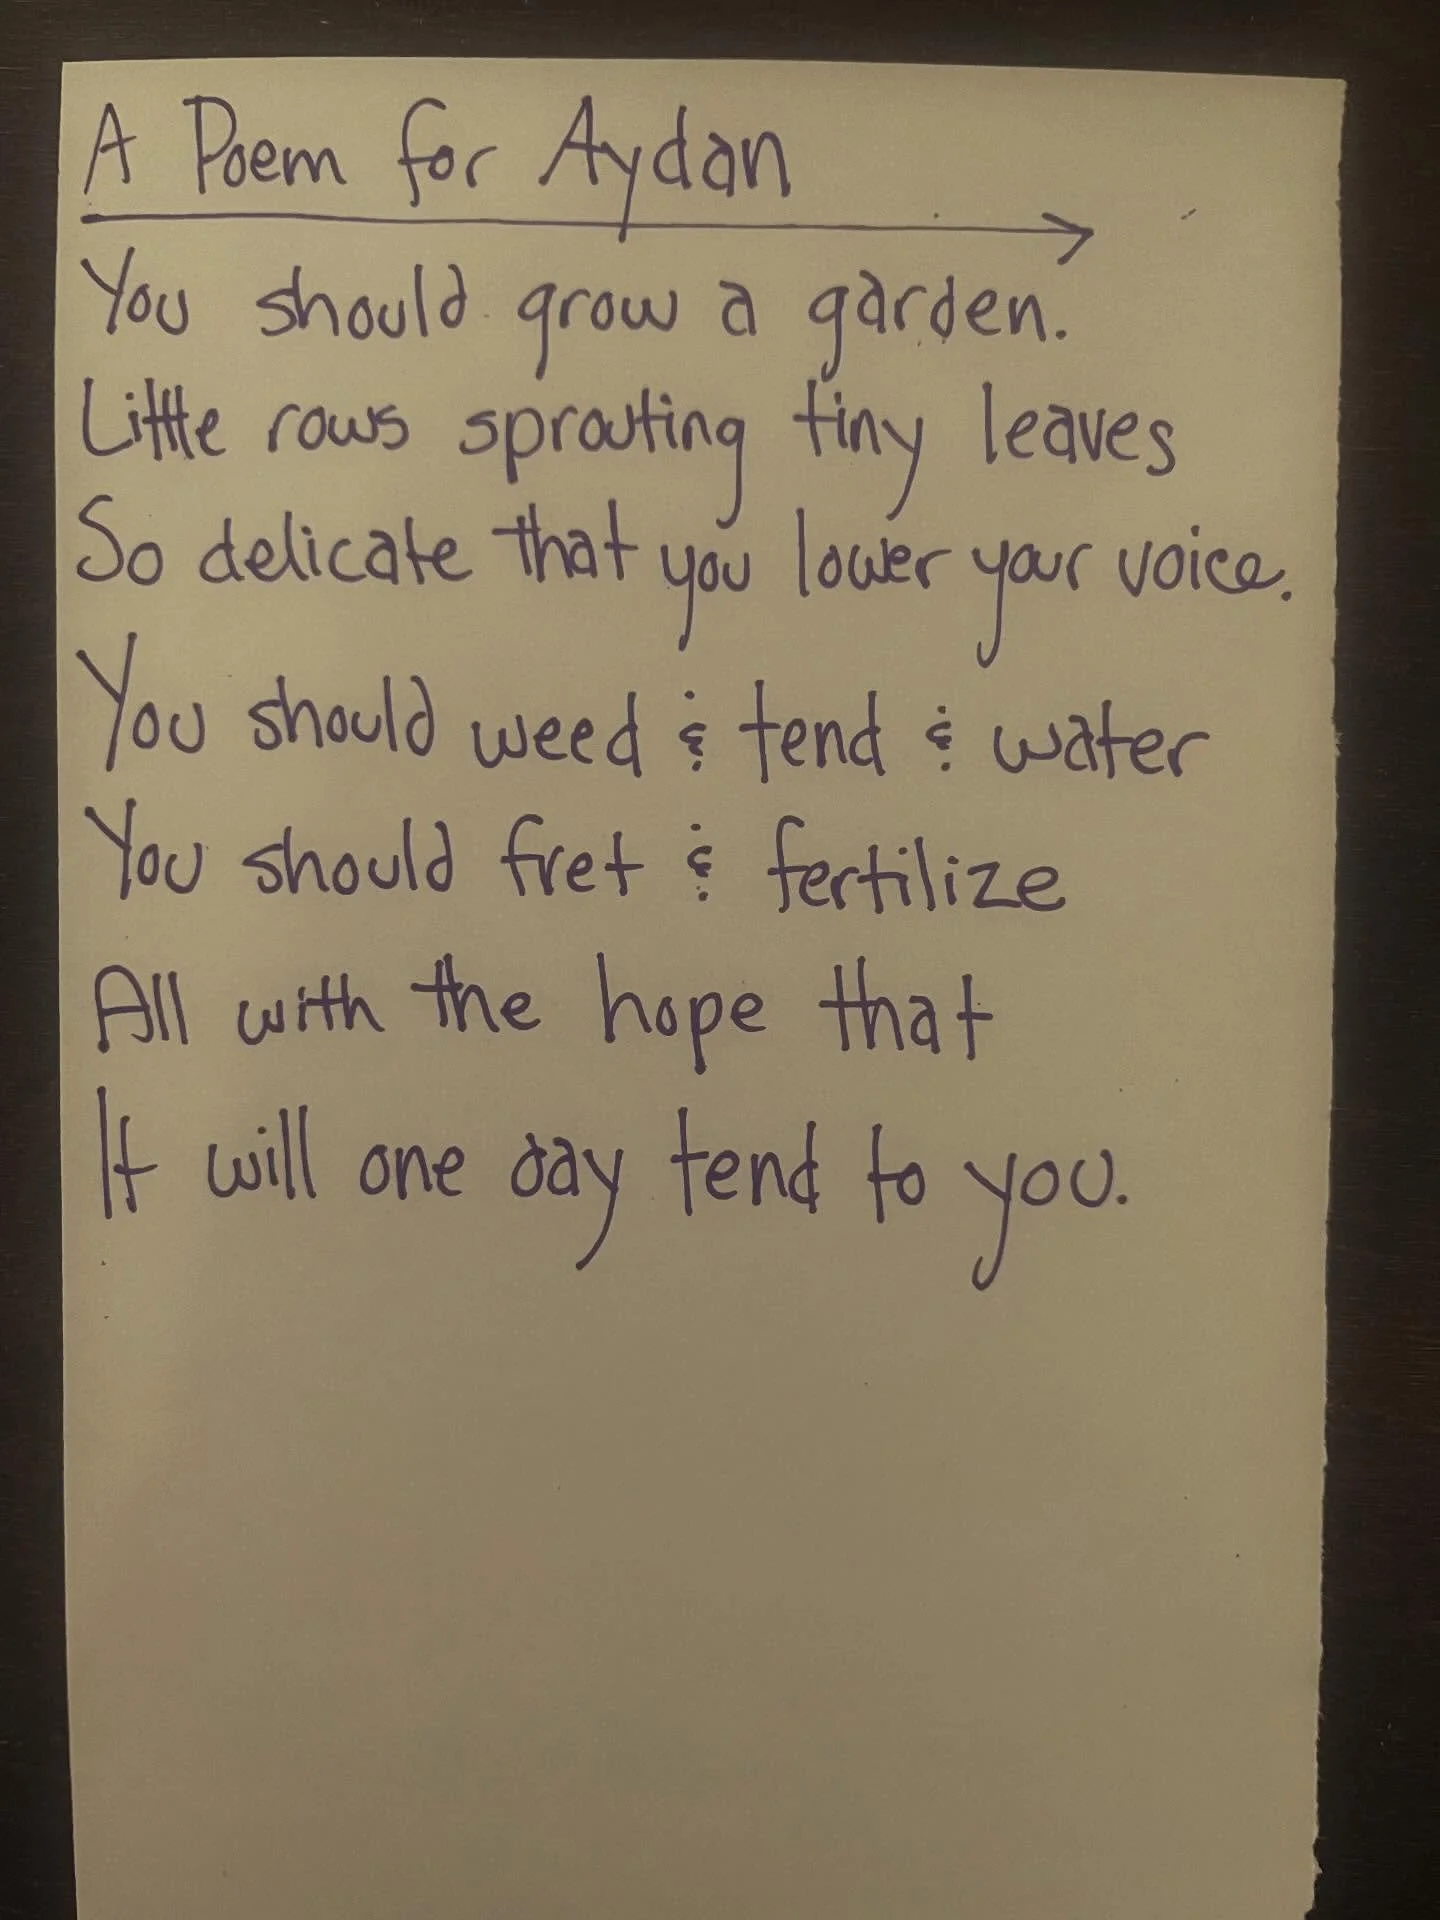 A Poem for Aydan
You should grow a garden.
Little rows sprouting tiny leaves
So delicate that you lower your voice.
You should weed & tend & water
You should fret & fertilize
All with the hope that
It will one day tend to you.